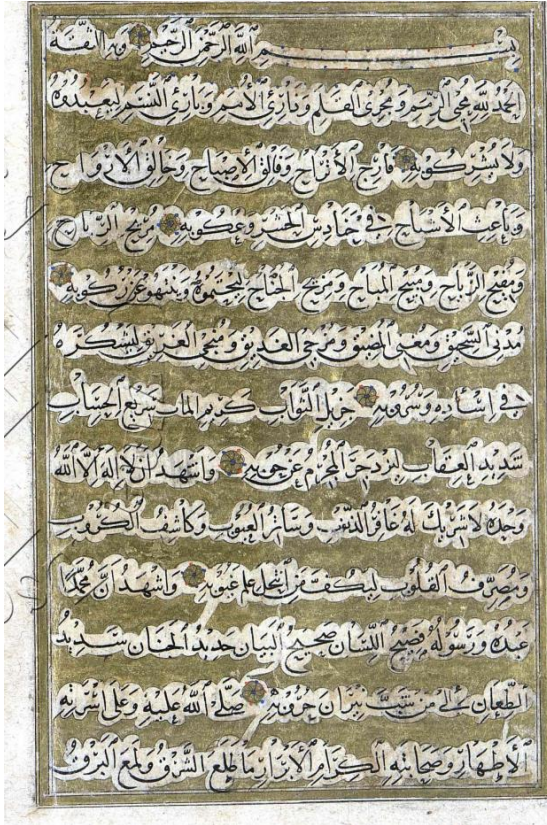 بسم الله الرحمن الرحيم وبه الثقة
الحمد لله محيي الرمم ومجرى القلم وبارئ الأمم وبارئ النسم ليعبدوه
ولا يشركو به فارج الأتراح وفالق الإصباح وخالق الأرواح
وباعث الأشباح في حنادس الحشر وعكوبه مزيح
ومبيح المباح ومزيح الجناح
مدني السحيق ومغني المضيق ومزجي الغديق ومنجي الغريق ليشكره
في جزيل الثواب كريم المآب سريع الحساب
شديد العقاب ليزدجر المجرم عن حوبه وأشهد ان لا إله الا الله
وحده لا شريك له غافر الذنوب وساتر العيوب وكاشف الكروب
ومصرف القلوب ليكف من انتحل علم غيوبه واشهد أن محمدا
عبده ورسوله فصيح اللسان صحيح البيان حديد الجنان شديد
الطعان على من شب نيران حروبه صلى الله عليه وعلى أسرته
الأطهار وصحابته الكرام الأبرار ما طلع الشرق ولمع البرق